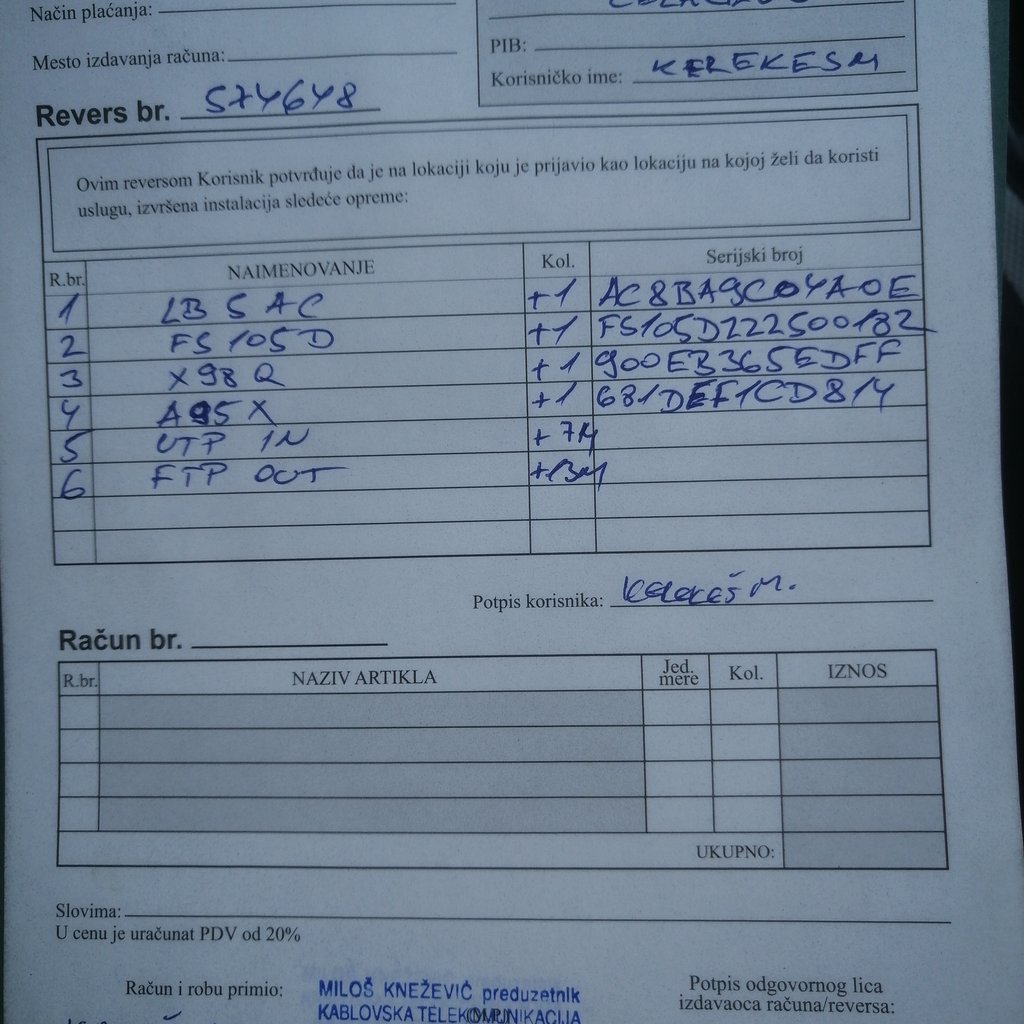 Način plaćanja:
Mesto izdavanja računa:
PIB:
Korisničko ime: KEREKESM
Revers br. 574648
Ovim reversom Korisnik potvrđuje da je na lokaciji koju je prijavio kao lokaciju na kojoj želi da koristi
uslugu, izvršena instalacija sledeće opreme:
R.br. NAIMENOVANJE Kol. Serijski broj
1 LB 5 AC +1 AC8BA9C04A0E
2 FS 105 D +1 FS105D222500182
3 X98 Q +1 900EB365EDFF
4 A95X +1 681DEF1CD814
5 UTP IN + 7M
6 FTP OUT +13M
Potpis korisnika: Kerekeš M.
Račun br.
R.br. NAZIV ARTIKLA Jed. mere Kol. IZNOS
UKUPNO:
Slovima:
U cenu je uračunat PDV od 20%
Račun i robu primio:
MILOŠ KNEŽEVIĆ preduzetnik
KABLOVSKA TELEKOMUNIKACIJA
(M.P.)
Potpis odgovornog lica
izdavaoca računa/reversa: